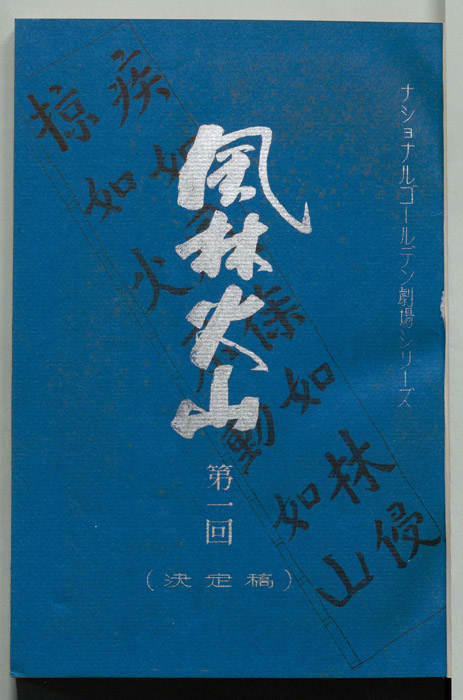 ナショナルゴールデン劇場シリーズ
風林火山
第一回
(決定稿)
疾如徐如林侵
掠如火不動如山